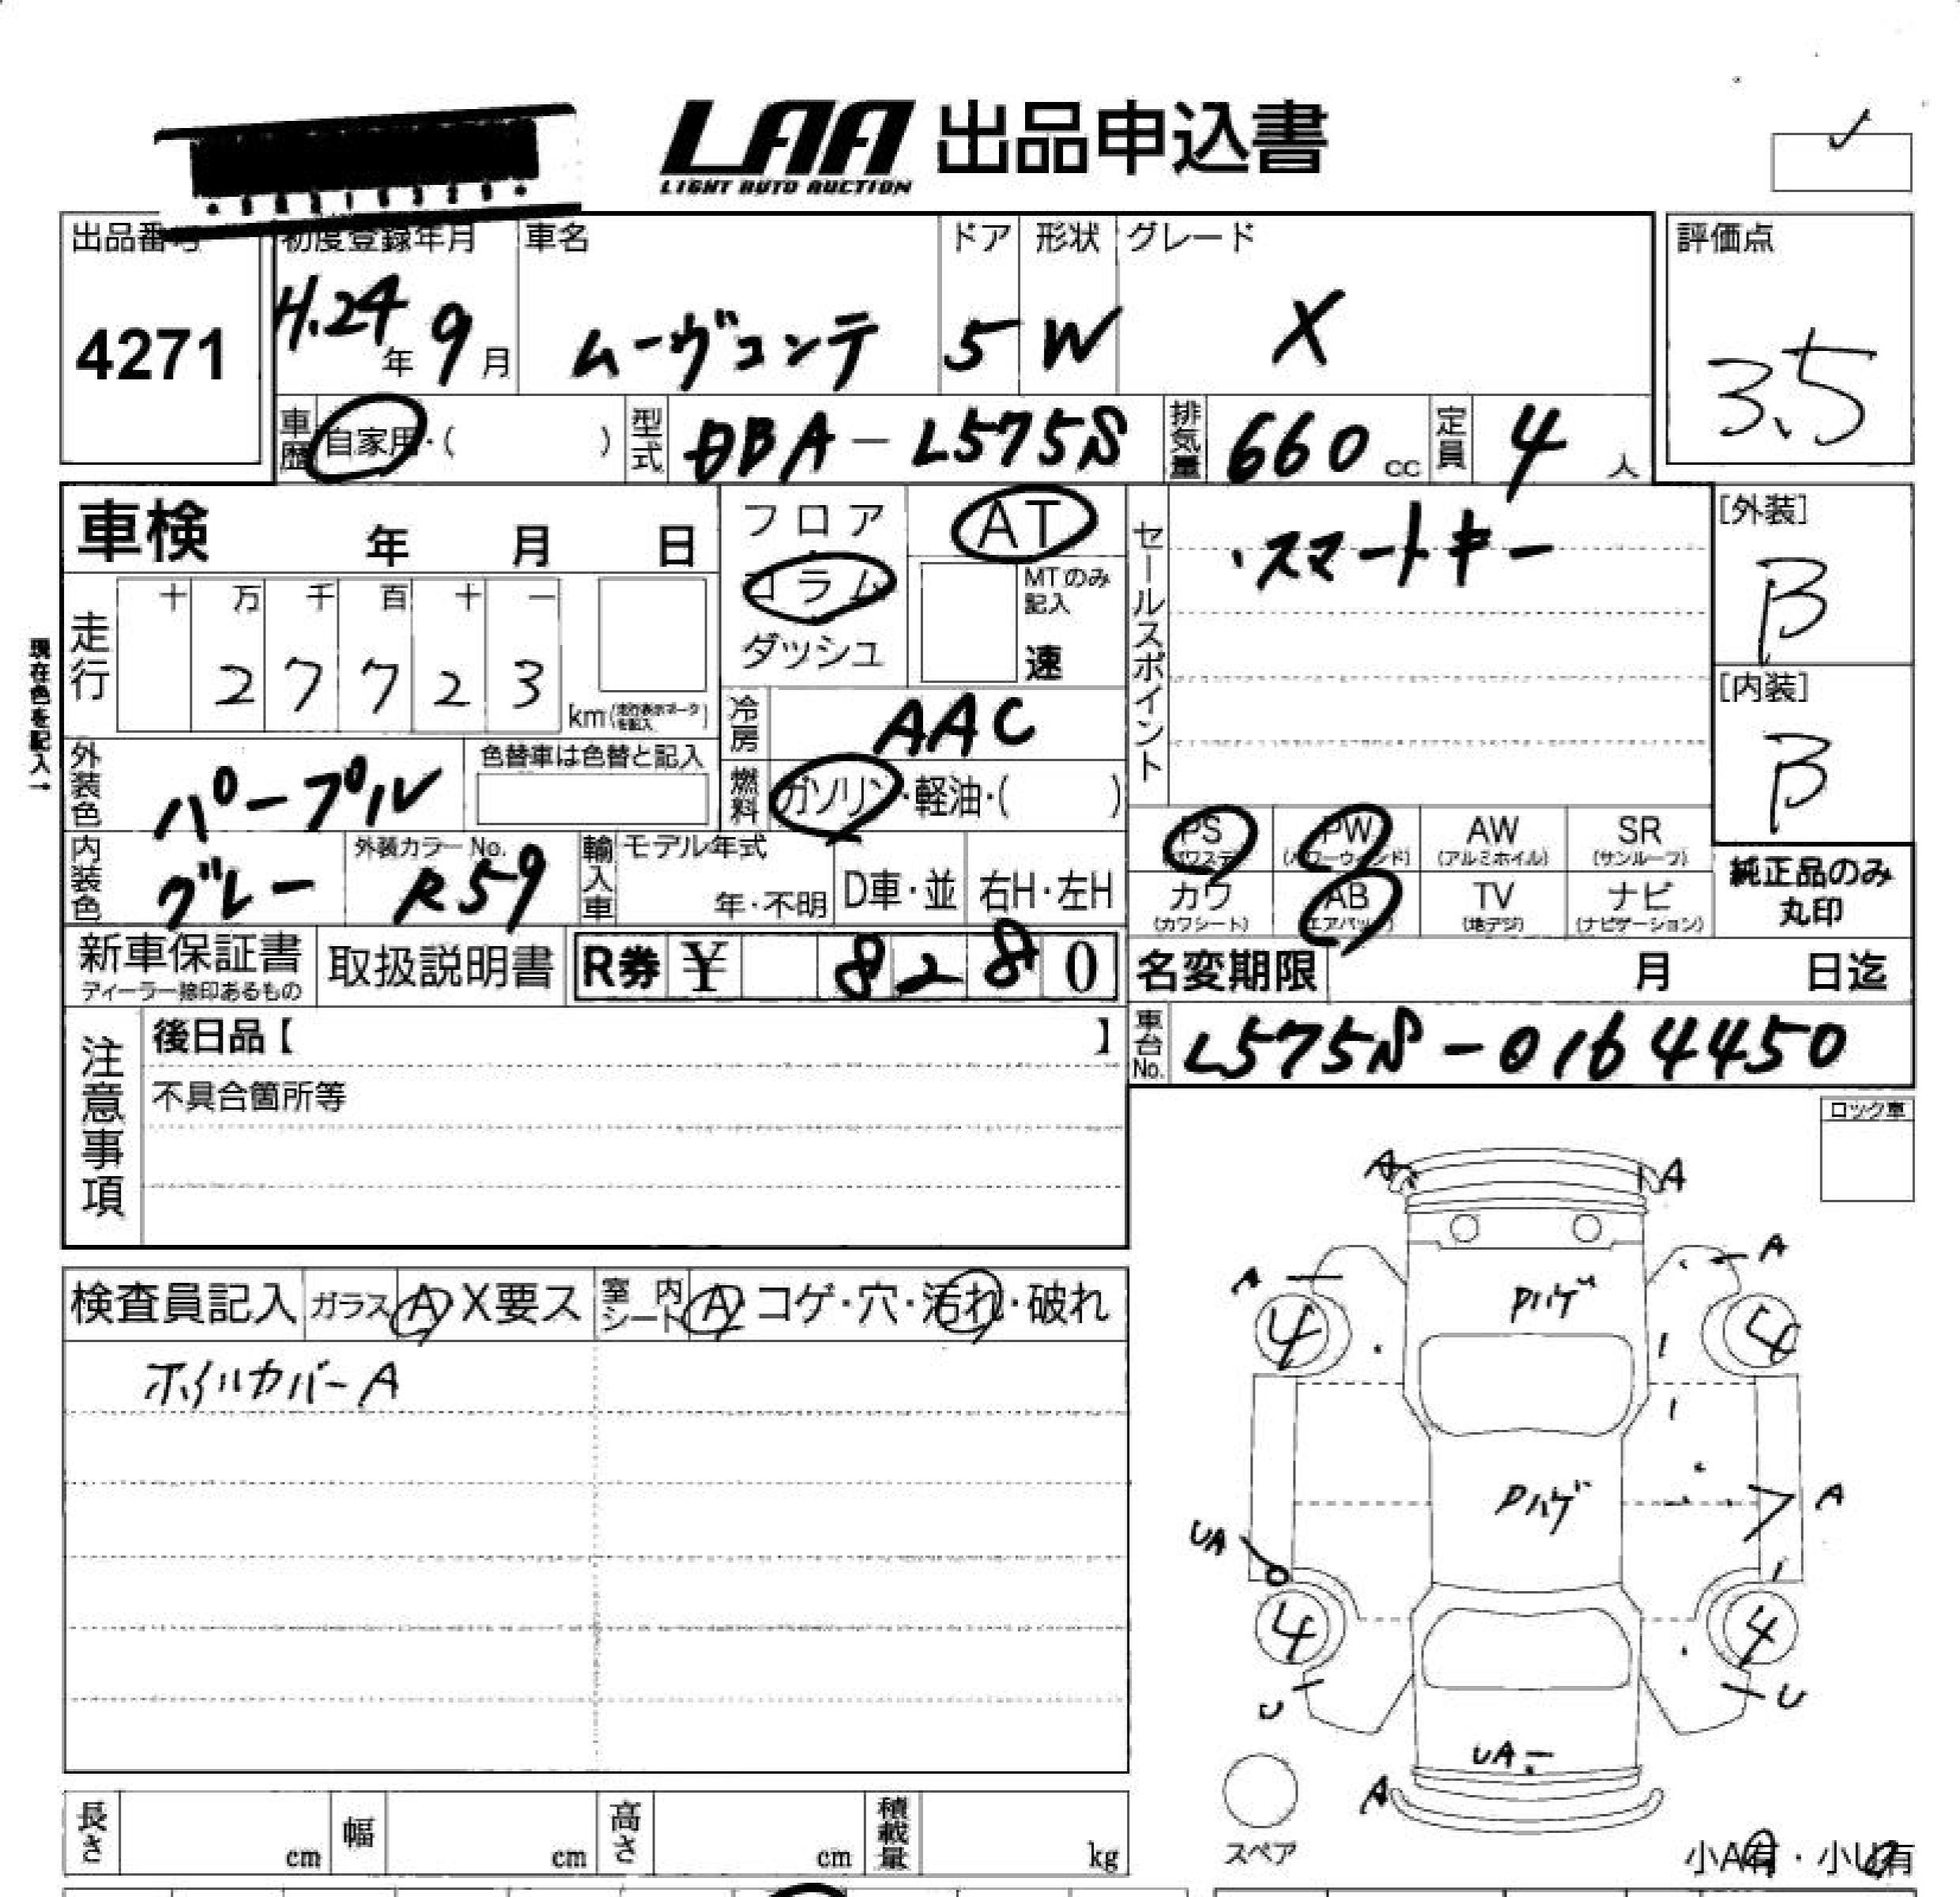 LAA 出品申込書
LIGHT AUTO AUCTION
出品番号 初度登録年月 車名 ドア 形状 グレード 評価点
4271 H.24年 9月 ムーヴコンテ 5 W X 3.5
車歴 自家用・( ) 型式 DBA-L575S 排気量 660cc 定員 4人
車検 年 月 日
フロア AT
コラム MTのみ記入
ダッシュ 速
セールスポイント
・スマートキー
[外装]
B
[内装]
B
現在色を記入→
走行 十 万 千 百 十 一
2 7 7 2 3 km(走行表示メータを記入)
冷房 AAC
外装色 パープル 色替車は色替と記入
燃料 ガソリン・軽油・( )
PS PW AW SR
(パワステ) (パワーウィンド) (アルミホイル) (サンルーフ)
内装色 グレー 外装カラーNo. R59 輸入車 モデル年式 年・不明 D車・並 右H・左H
カワ AB TV ナビ
(カワシート) (エアバッグ) (地デジ) (ナビゲーション)
純正品のみ
丸印
新車保証書 取扱説明書 R券 ¥ 8 2 8 0 名変期限 月 日迄
ディーラー捺印あるもの
注意事項 後日品【 】
車台No. L575S-0164450
不具合箇所等
ロック車
検査員記入 ガラス A X要ス 室内シート A コゲ・穴・汚れ・破れ
ホイルカバーA
A A
A A
Pハゲ
4 4
Pハゲ A
UA
4 4
U U
UA
A
スペア
小A有・小U有
長さ cm 幅 cm 高さ cm 積載量 kg